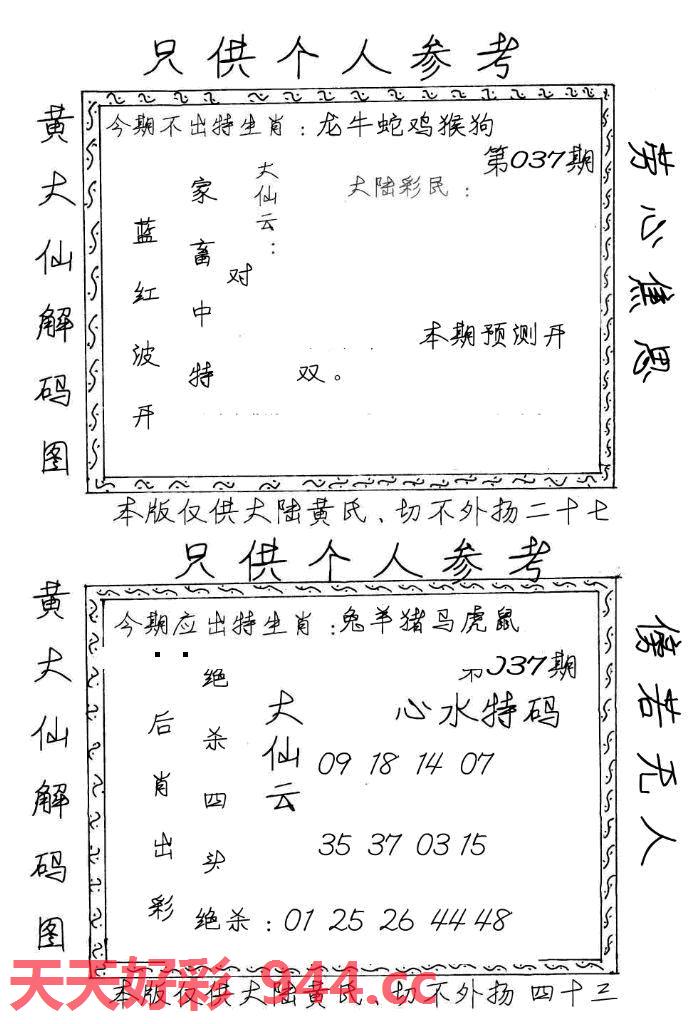 只供个人参考
黄大仙解码图
今期不出特生肖：龙牛蛇鸡猴狗
第037期
大陆彩民：
大仙云：
家畜中特
对
双。
蓝红波开
本期预测开
劳心焦思
本版仅供大陆黄氏、切不外扬二十七
只供个人参考
黄大仙解码图
今期应出特生肖：兔羊猪马虎鼠
037期
心水特码
大仙云
绝杀四头
后肖出彩
09 18 14 07
35 37 03 15
绝杀：01 25 26 44 48
傍若无人
天天好彩 944.cc
本版仅供大陆黄氏、切不外扬 四十三